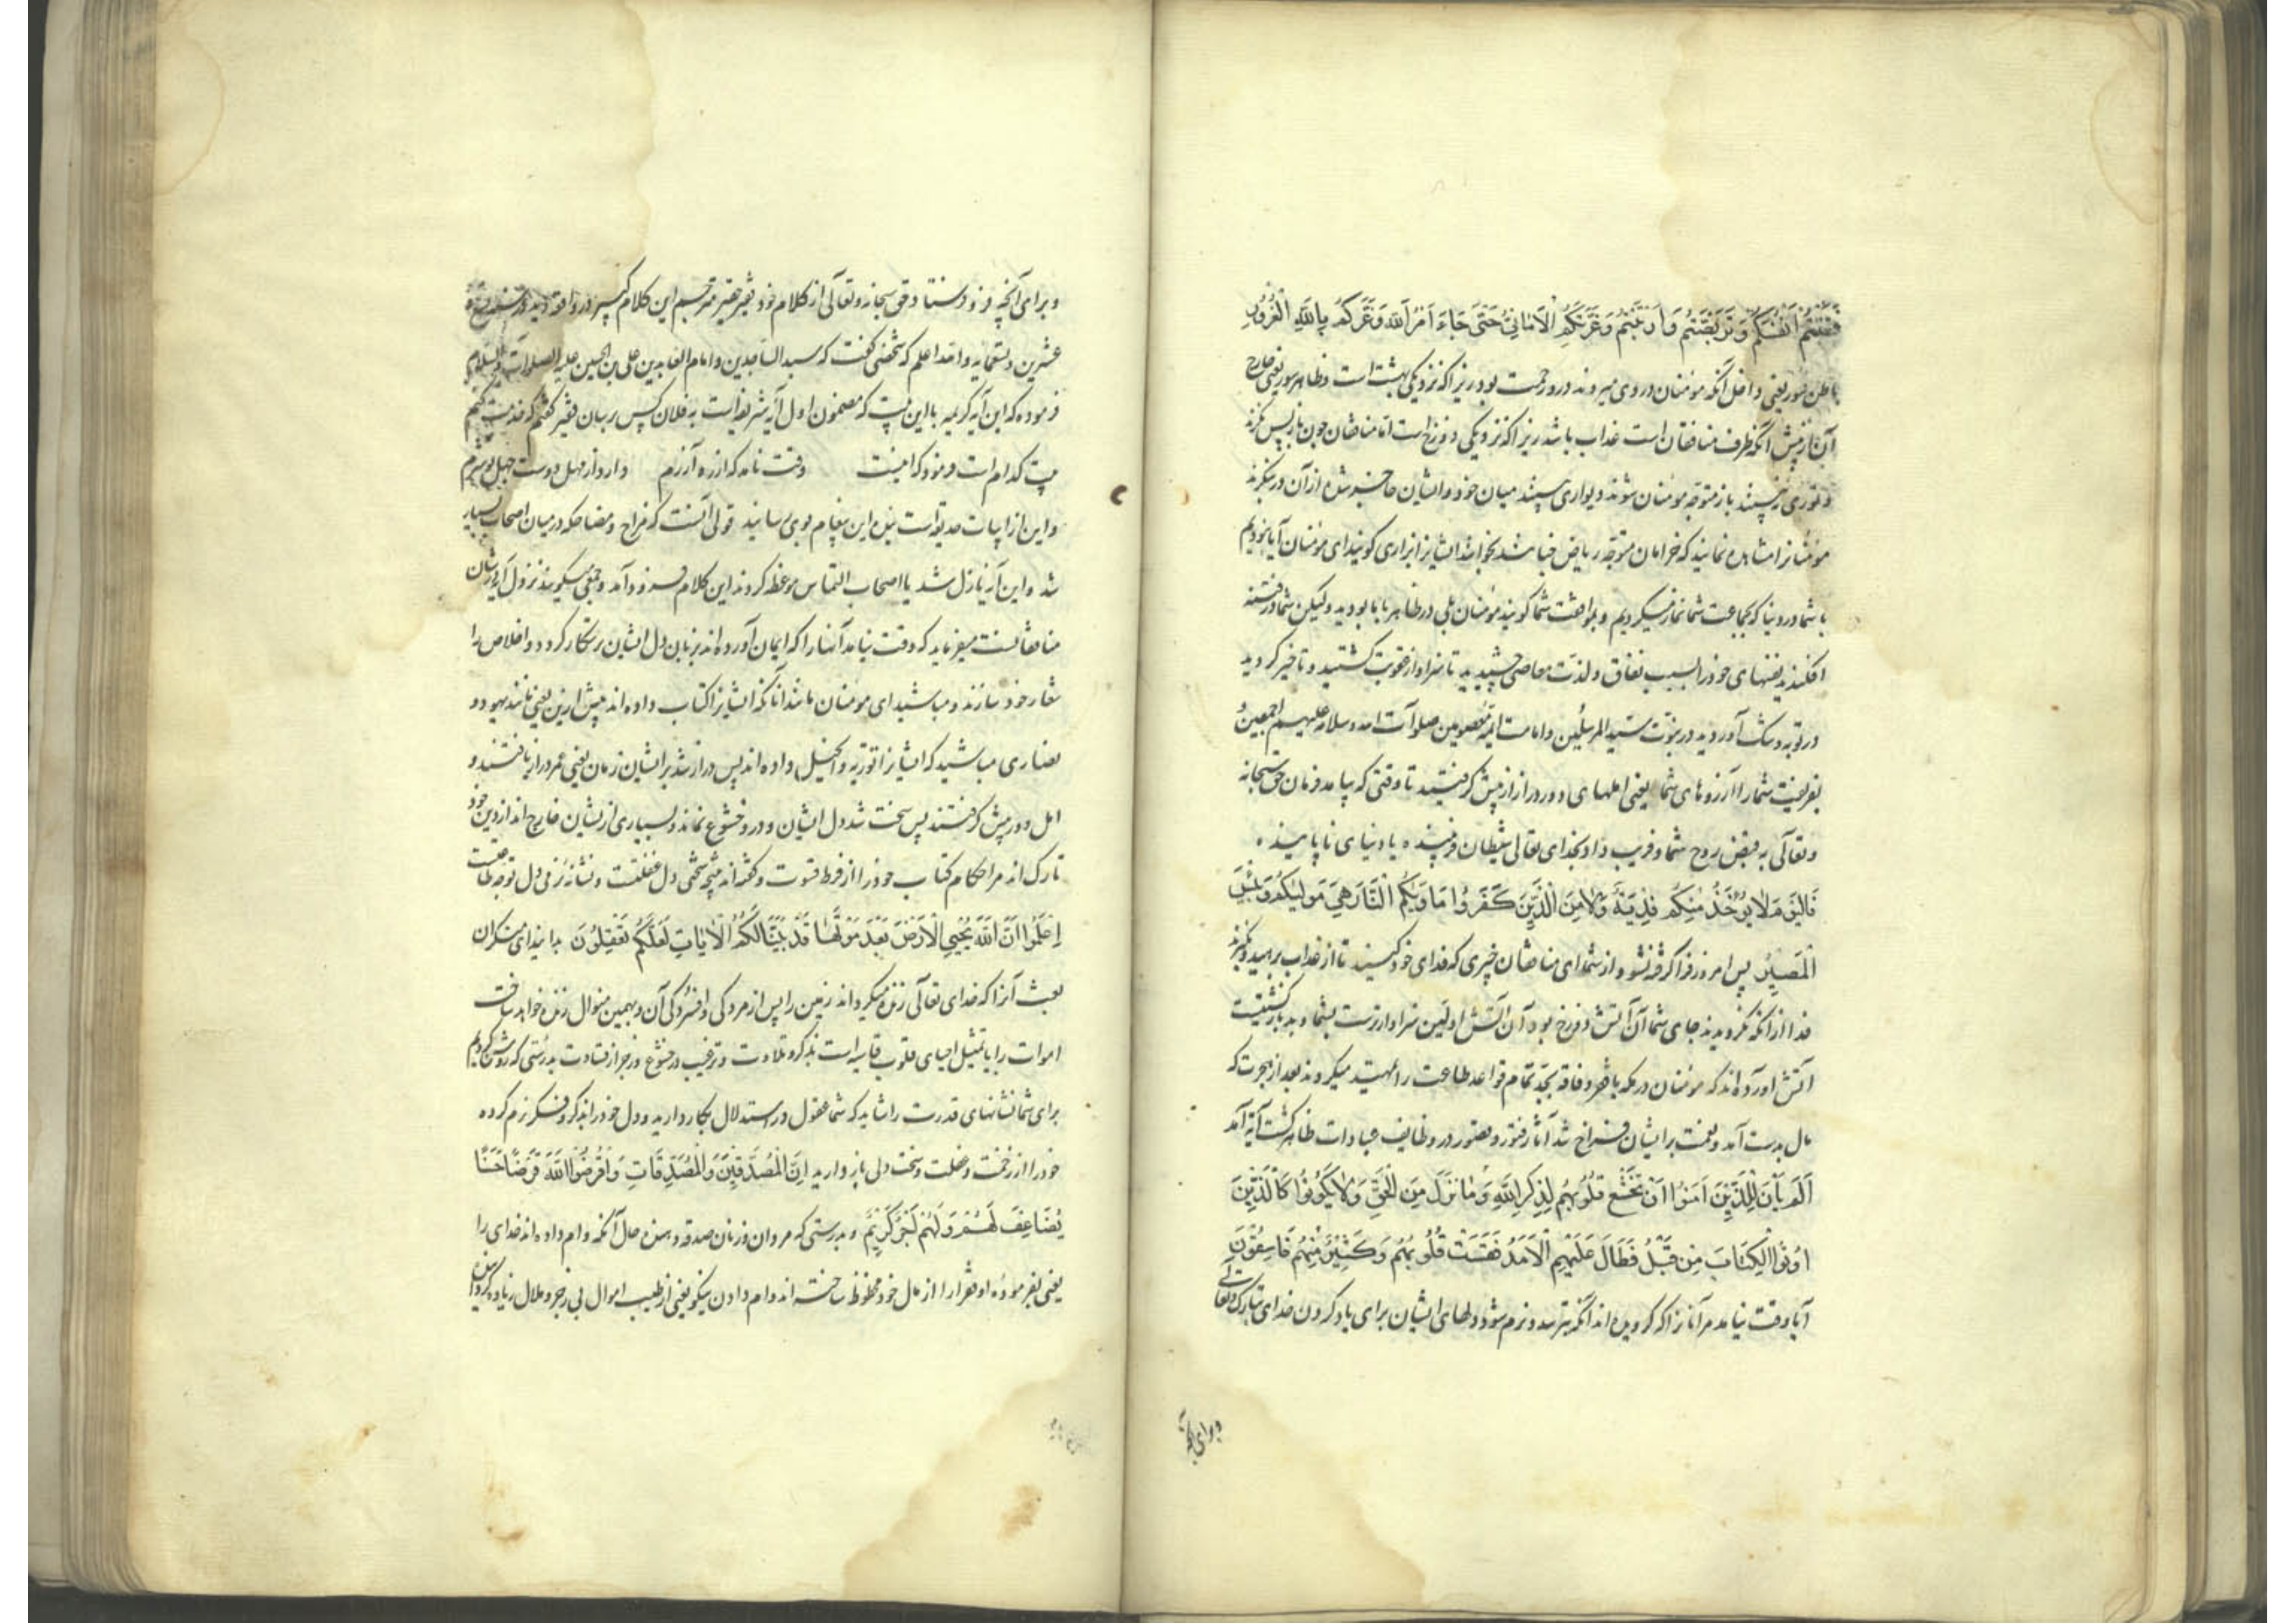 فَتَنْتُمْ أَنْفُسَكُمْ وَتَرَبَّصْتُمْ وَارْتَبْتُمْ وَغَرَّتْكُمُ الْأَمَانِيُّ حَتَّى جَاءَ أَمْرُ اللَّهِ وَغَرَّكُمْ بِاللَّهِ الْغَرُورُ
باطن سور یعنی داخل آنکه مؤمنان در وی میروند درو رحمت بود زیرا که نزدیک بهشت است و ظاهر سور یعنی خارج
آن از پیش آنکه طرف منافقان است عذاب باشد زیرا که نزدیک دوزخ است اما منافقان چون باز پس نگرند
و نوری نه بینند باز متوجه مؤمنان شوند دیواری بینند میان خود و ایشان حاضر شده از آن در نگرند
مؤمنانرا مشاهده نمایند که خرامان متوجه ریاض جنان شدند بخوانند ایشانرا بزاری گویند ای مؤمنان آیا نبودیم
با شما در دنیا که بجماعت شما نماز میکردیم و بموافقت شما گویند مؤمنان بلی در ظاهر با ما بودید ولیکن شما در فتنه
افکندید نفسهای خود را بسبب نفاق و لذت معاصی چشیدید تا سزاوار عقوبت گشتید و تاخیر کردید
در توبه و شک آوردید در نبوت سید المرسلین و امامت ائمه معصومین صلوات الله و سلامه علیهم اجمعین و
بفریفت شما را آرزوهای شما یعنی املهای دور دراز از پیش گرفتید تا وقتی که بیامد فرمان حق سبحانه
و تعالی به قبض روح شما و فریب داد بخدای تعالی شیطان فریبنده یا دنیای ناپاینده
فَالْيَوْمَ لَا يُؤْخَذُ مِنْكُمْ فِدْيَةٌ وَلَا مِنَ الَّذِينَ كَفَرُوا مَأْوَيكُمُ النَّارُ هِيَ مَوْلَيكُمْ وَبِئْسَ
الْمَصِيرُ پس امروز فرا گرفته نشود از شما ای منافقان چیزی که فدای خود کنید تا از عذاب برهید و نگیرند
فدا از آنکه نگرویدند جای شما آن آتش دوزخ بود آن آتش اولین سزاوارترست بشما و بد بازگشتیست
آتش آورده اند که مؤمنان در مکه با فقر و فاقه بجد تمام قواعد طاعت را تمهید میکردند بعد از هجرت که
مال بدست آمد و نعمت بر ایشان فراخ شد آثار فتور و قصور در وظایف عبادات ظاهر گشت آیه آمد
أَلَمْ يَأْنِ لِلَّذِينَ آمَنُوا أَنْ تَخْشَعَ قُلُوبُهُمْ لِذِكْرِ اللَّهِ وَمَا نَزَلَ مِنَ الْحَقِّ وَلَا يَكُونُوا كَالَّذِينَ
أُوتُوا الْكِتَابَ مِنْ قَبْلُ فَطَالَ عَلَيْهِمُ الْأَمَدُ فَقَسَتْ قُلُوبُهُمْ وَكَثِيرٌ مِنْهُمْ فَاسِقُونَ
آیا وقت نیامد مر آنانرا که گرویده اند آنکه بترسد و نرم شود دلهای ایشان برای یاد کردن خدای تبارک و تعالی
و برای آنچه
و برای آنچه فرو فرستاد حق سبحانه و تعالی از کلام خود فقیر حقیر مترجم این کلام کبیر در واقعه دید در سنه
عشرین و تسعمایه والله اعلم که شخصی گفت که سید الساجدین و امام العابدین علی بن الحسین علیه الصلوات والسلام
فرموده که این آیه کریمه با این بیت که مضمون اول آیه شریفه است به فلان کس رسان فقیر گفتم که خدمت گفتم
بیت کدام است فرمود که اینست وقت نامد که از ره آزرم دارد از مهل دوست جهل تو شرم
و این از ابیات حدیقه است بنده این پیغام بوی رسانید قولی آنست که مزاح و مضاحکه در میان اصحاب بسیار
شد و این آیه نازل شد یا اصحاب التماس موعظه کردند این کلام فرود آمد و جمعی میگویند نزول آیه در شان
منافقانست میفرماید که وقت نیامد آنها را که ایمان آورده اند بزبان دل ایشان رستکار گردد و اخلاص را
شعار خود سازند و مباشید ای مؤمنان مانند آنانکه ایشانرا کتاب داده اند پیش ازین یعنی مانند یهود و
نصاری مباشید که ایشانرا توریه و انجیل داده اند پس دراز شد بر ایشان زمان یعنی عمر دراز یافتند و
امل دور پیش گرفتند پس سخت شد دل ایشان و درو خشوع نماند و بسیاری از ایشان خارج اند از دین خود
تارک اند مر احکام کتاب خود را از فرط قسوت و گفته اند نتیجه سختی دل غفلتست و نشانه نرمی دل توجه بطاعتست
اِعْلَمُوا أَنَّ اللَّهَ يُحْيِي الْأَرْضَ بَعْدَ مَوْتِهَا قَدْ بَيَّنَّا لَكُمُ الْآيَاتِ لَعَلَّكُمْ تَعْقِلُونَ بدانید ای منکران
بعث آنرا که خدای تعالی زنده میگرداند زمین را پس از مردگی و افسردگی آن و بهمین منوال زنده خواهد ساخت
اموات را یا تمثیل احیای قلوب قاسیه است بذکر و تلاوت و ترغیب در خشوع و زجر از قساوت بدرستی که روشن کردیم
برای شما نشانهای قدرت را شاید که شما عقول در استدلال بکار دارید و دل خود را بذکر و فکر نرم کرده
خود را از رخصت و غفلت و سخت دلی باز دارید إِنَّ الْمُصَّدِّقِينَ وَالْمُصَّدِّقَاتِ وَأَقْرَضُوا اللَّهَ قَرْضًا حَسَنًا
يُضَاعَفُ لَهُمْ وَلَهُمْ أَجْرٌ كَرِيمٌ و بدرستی که مردان و زنان صدقه دهنده حال آنکه وام داده اند خدای را
یعنی بفرموده او فقرا را از مال خود محظوظ ساخته اند وام دادن نیکو یعنی از طیب اموال بی زجر و ملال زیاده گردد